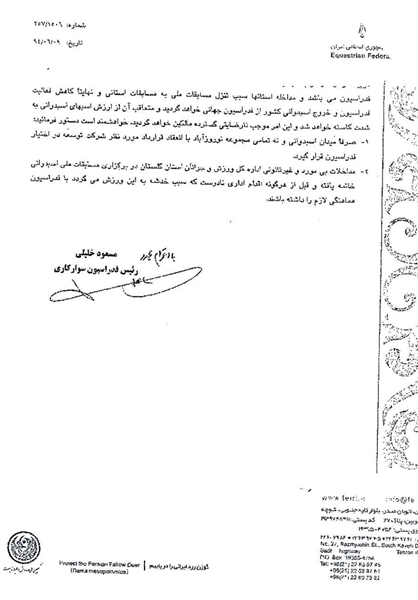 شماره: ۲۵۷/۱۵۰۶
تاریخ: ۹۴/۰۶/۰۹
جمهوری اسلامی ایران
Equestrian Federa
فدراسیون می باشد و مداخله استانها سبب تنزل مسابقات ملی به مسابقات استانی و نهایتاً کاهش فعالیت
فدراسیون و خروج اسبدوانی کشور از فدراسیون جهانی خواهد گردید و متعاقب آن از ارزش اسبهای اسبدوانی به
شدت کاسته خواهد شد و این امر موجب نارضایتی گسترده مالکین خواهد گردید. خواهشمند است دستور فرمائید:
۱- صرفاً میدان اسبدوانی و نه تمامی مجموعه نوروزآباد با انعقاد قرارداد مورد نظر شرکت توسعه در اختیار
فدراسیون قرار گیرد.
۲- مداخلات بی مورد و غیرقانونی اداره کل ورزش و جوانان استان گلستان در برگزاری مسابقات ملی اسبدوانی
خاتمه یافته و قبل از هرگونه اقدام اداری نادرست که سبب خدشه به این ورزش می گردد با فدراسیون
هماهنگی لازم را داشته باشند.
مسعود خلیلی
رئیس فدراسیون سوارکاری
گوزن زرد ایرانی را دریابیم
Protect the Persian Fallow Deer
(Dama mesopotamica)